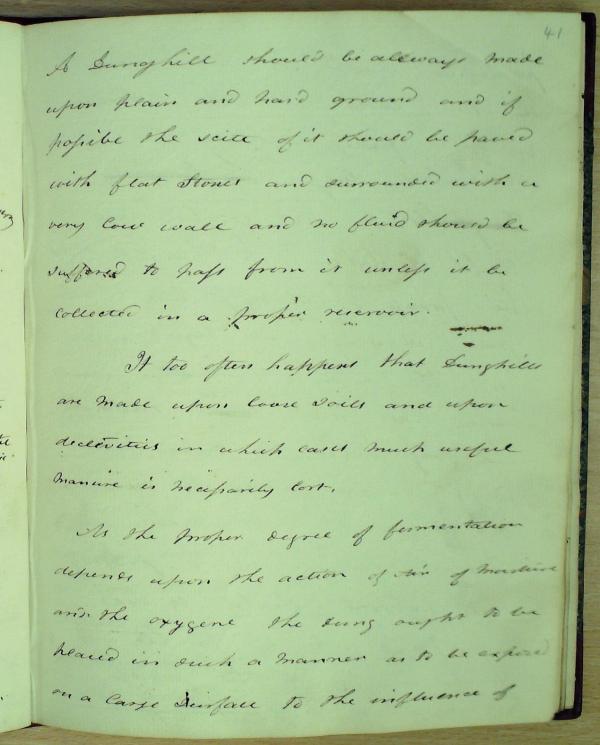 41
A Dunghill should be allways made
upon plain and hard ground and if
possible the scite of it should be paved
with flat Stones and surrounded with a
very low wall and no fluid should be
suffered to pass from it unless it be
collected in a proper reservoir.
It too often happens that Dunghills
are made upon loose soils and upon
declevities in which cases much useful
Manure is necessarily lost.
As the proper degree of fermentation
depends upon the action of Air of Moisture
and the oxygene the dung ought to be
placed in such a manner as to be exposed
on a large surface to the influence of